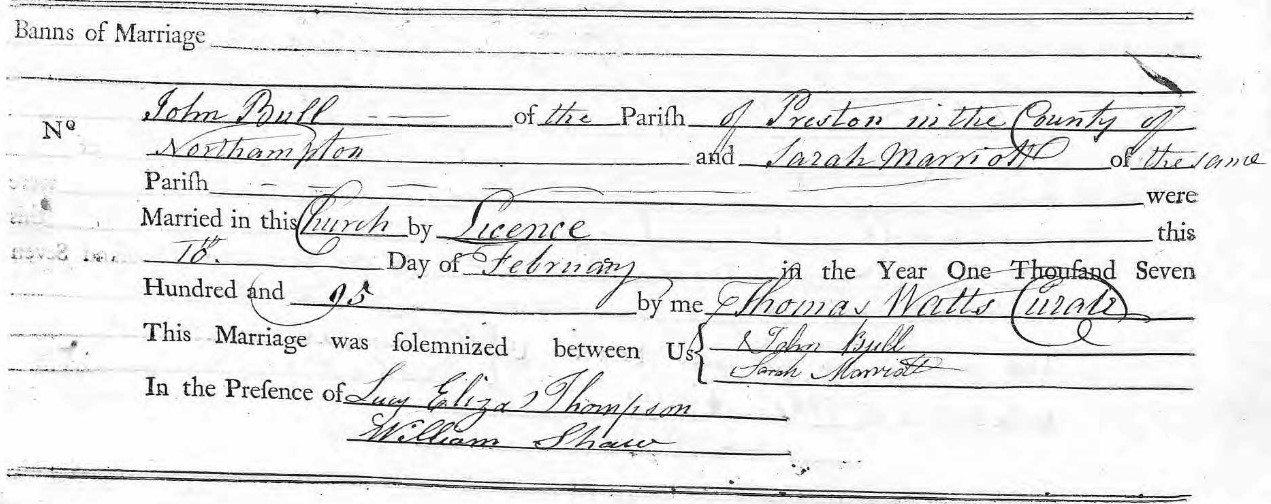 Banns of Marriage
John Bull of the Pariſh of Preston in the County of
Nº
Northampton and Sarah Marriott of the same
Pariſh were
Married in this Church by Licence this
10th. Day of February in the Year One Thouſand Seven
Hundred and 95 by me Thomas Watts Curate
This Marriage was ſolemnized between Us John Bull
Sarah Marriott
In the Preſence of Lucy Eliza Thompson
William Shaw